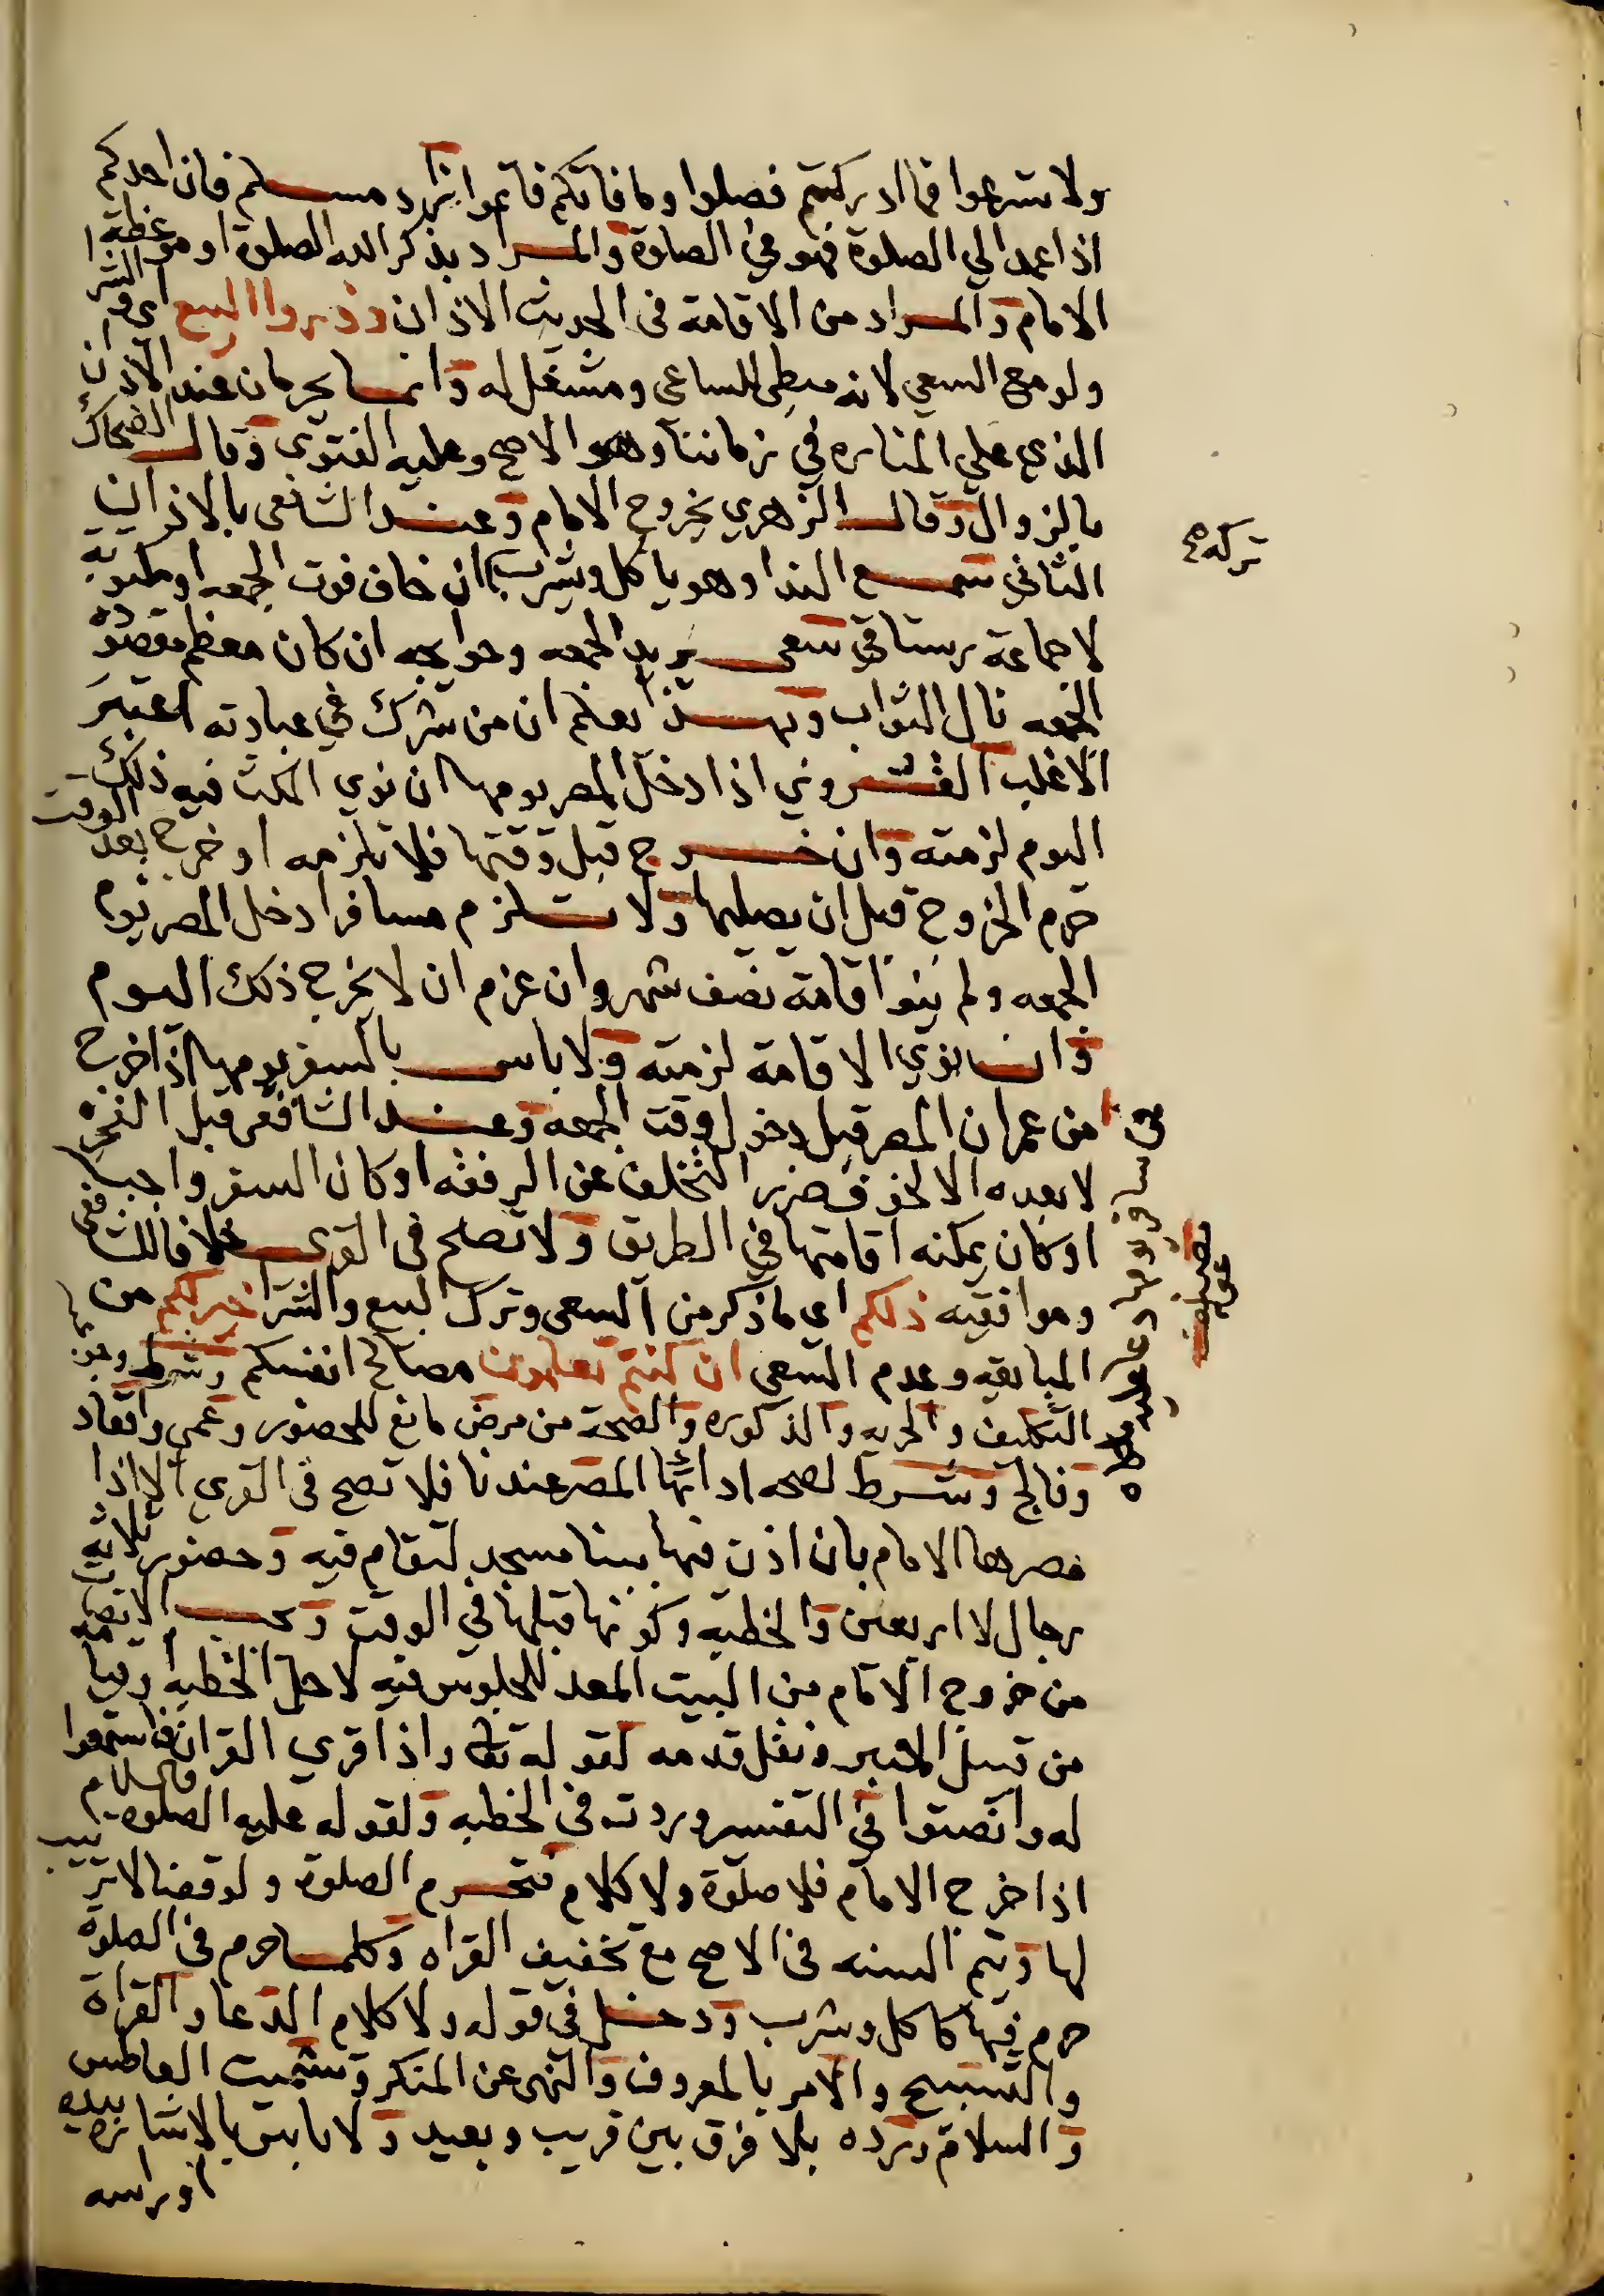 ولا تسرعوا فما ادركتم فصلوا وما فاتكم فاتموا زاد مسلم فان احدكم
اذا عمد الي الصلوة فهو في الصلوة والمراد بذكر الله الصلوة او موعظة
الامام والمراد من الاقامة في الحديث الاذان وذروا البيع اي والشرا
ولو مع السعي لانه مبطي للساعي ومشتغل له وانما يحرمان عند الاذان
الذي علي المناره في زماننا وهو الاصح وعليه الفتوي وقال الضحاك
بالزوال وقال الزهري بخروج الامام وعند الشافعي بالاذان
الثاني سمع الندا وهو ياكل ويشرب ان خاف فوت الجمعه او مكتوبة
تركه صح
لا جماعة رستاقي سعى يريد الجمعه وحوايجه ان كان معظم مقصوده
الجمعه نال الثواب وبهذا يعلم ان من شرك في عبادته اعتبر
الاغلب القروي اذا دخل المصر يومها ان نوي المكث فيه ذلك
اليوم لزمته وان خرج قبل وقتها فلا تلزمه او خرج بعد الوقت
حرم الخروج قبل ان يصليها ولا تلزم مسافرا دخل المصر يوم
الجمعه ولم ينو اقامة نصف شهر وان عزم ان لا يخرج ذلك اليوم
وان نوي الاقامة لزمته ولا باس بالسفر يومها اذا خرج
من عمران المصر قبل دخول وقت الجمعه وعند الشافعي قبل الفجر
لا بعده الا لخوف ضرر التخلف عن الرفقه او كان السفر واجبا
او كان يمكنه اقامتها في الطريق ولا تصلح في القرى خلافا للشافعي
وموافقيه ذلكم اي ما ذكر من السعي وترك البيع والشرا خير لكم من
المبايعه وعدم السعي ان كنتم تعلمون مصالح انفسكم وشرط
التكليف والحريه والذكوره والصحة من مرض مانع للحضور وعمي واقعاد
وفالج وشرط لصحه ادائها المصر عندنا فلا تصح في القري الا اذا
مصرها الامام بان اذن فيها ببنا مسجد لتقام فيه وحضور ثلاثة
رجال لا اربعين والخطبه وكونها قبلها في الوقت ويجب الانصات
من خروج الامام من البيت المعد للجلوس فيه لاجل الخطبه او قيامه
من قبل المنبر ونقل قدمه لقوله تعالى واذا قري القران فاستمعوا
له وانصتوا في التفسير وردت في الخطبه ولقوله عليه الصلوه والسلام
اذا خرج الامام فلا صلوة ولا كلام فتحرم الصلوة ولو قضا لا ترتيب
لها ويتم السنه في الاصح مع تخفيف القراه وكلما حرم في الصلوة
حرم فيها كاكل وشرب ودخل في قوله ولا كلام الدعا والقراة
والتسبيح والامر بالمعروف والنهي عن المنكر وتشميت العاطس
والسلام ورده بلا فرق بين قريب وبعيد ولا باس بالاشاره بيده
او راسه